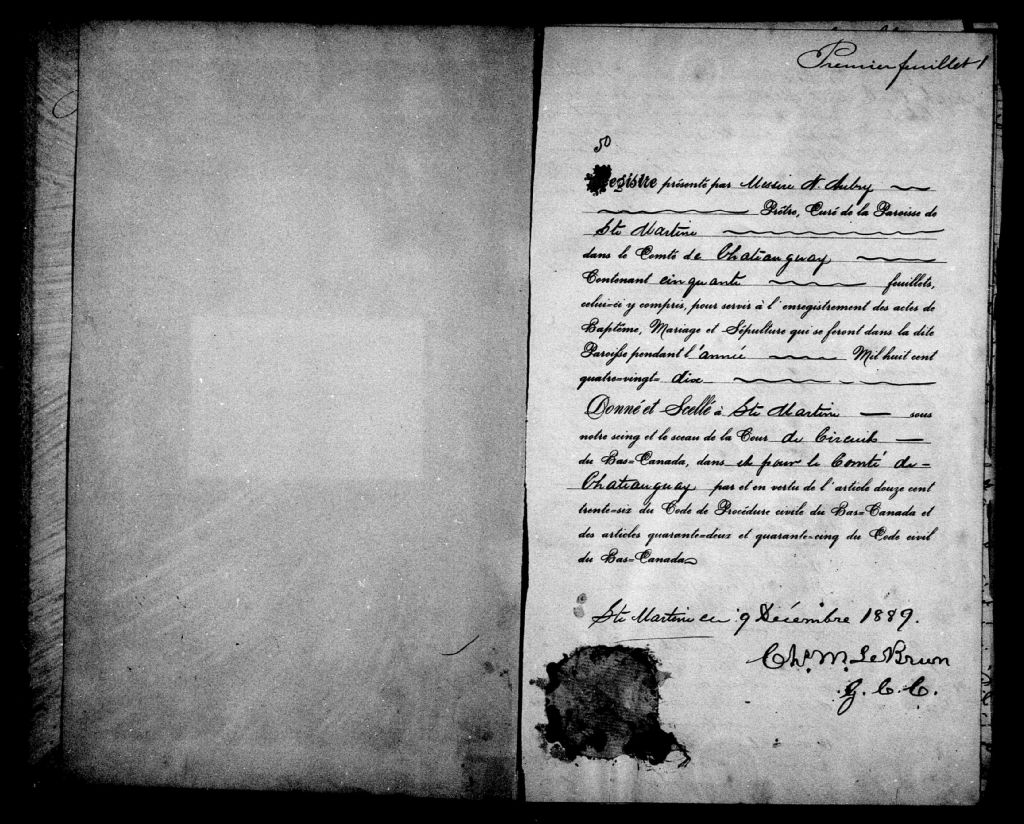 Premier feuillet 1
50
Registre présenté par Messire N. Aubry
Prêtre, Curé de la Paroisse de
Ste Martine
dans le Comté de Chateauguay
Contenant cinquante feuillets,
celui=ci y compris, pour servir à l'enregistrement des actes de
Baptême, Mariage et Sépulture qui se feront dans la dite
Paroisse pendant l'année Mil huit cent
quatre=vingt= dix
Donné et Scellé à Ste Martine sous
notre seing et le sceau de la Cour de Circuit
du Bas=Canada, dans et pour le Comté de
Chateauguay par et en vertu de l'article douze cent
trente=six du Code de Procédure civile du Bas=Canada et
des articles quarante=deux et quarante=cinq du Code civil
du Bas=Canada
Ste Martine ce 9 Décembre 1889.
Chs. M. LeBrun
G. C. C.